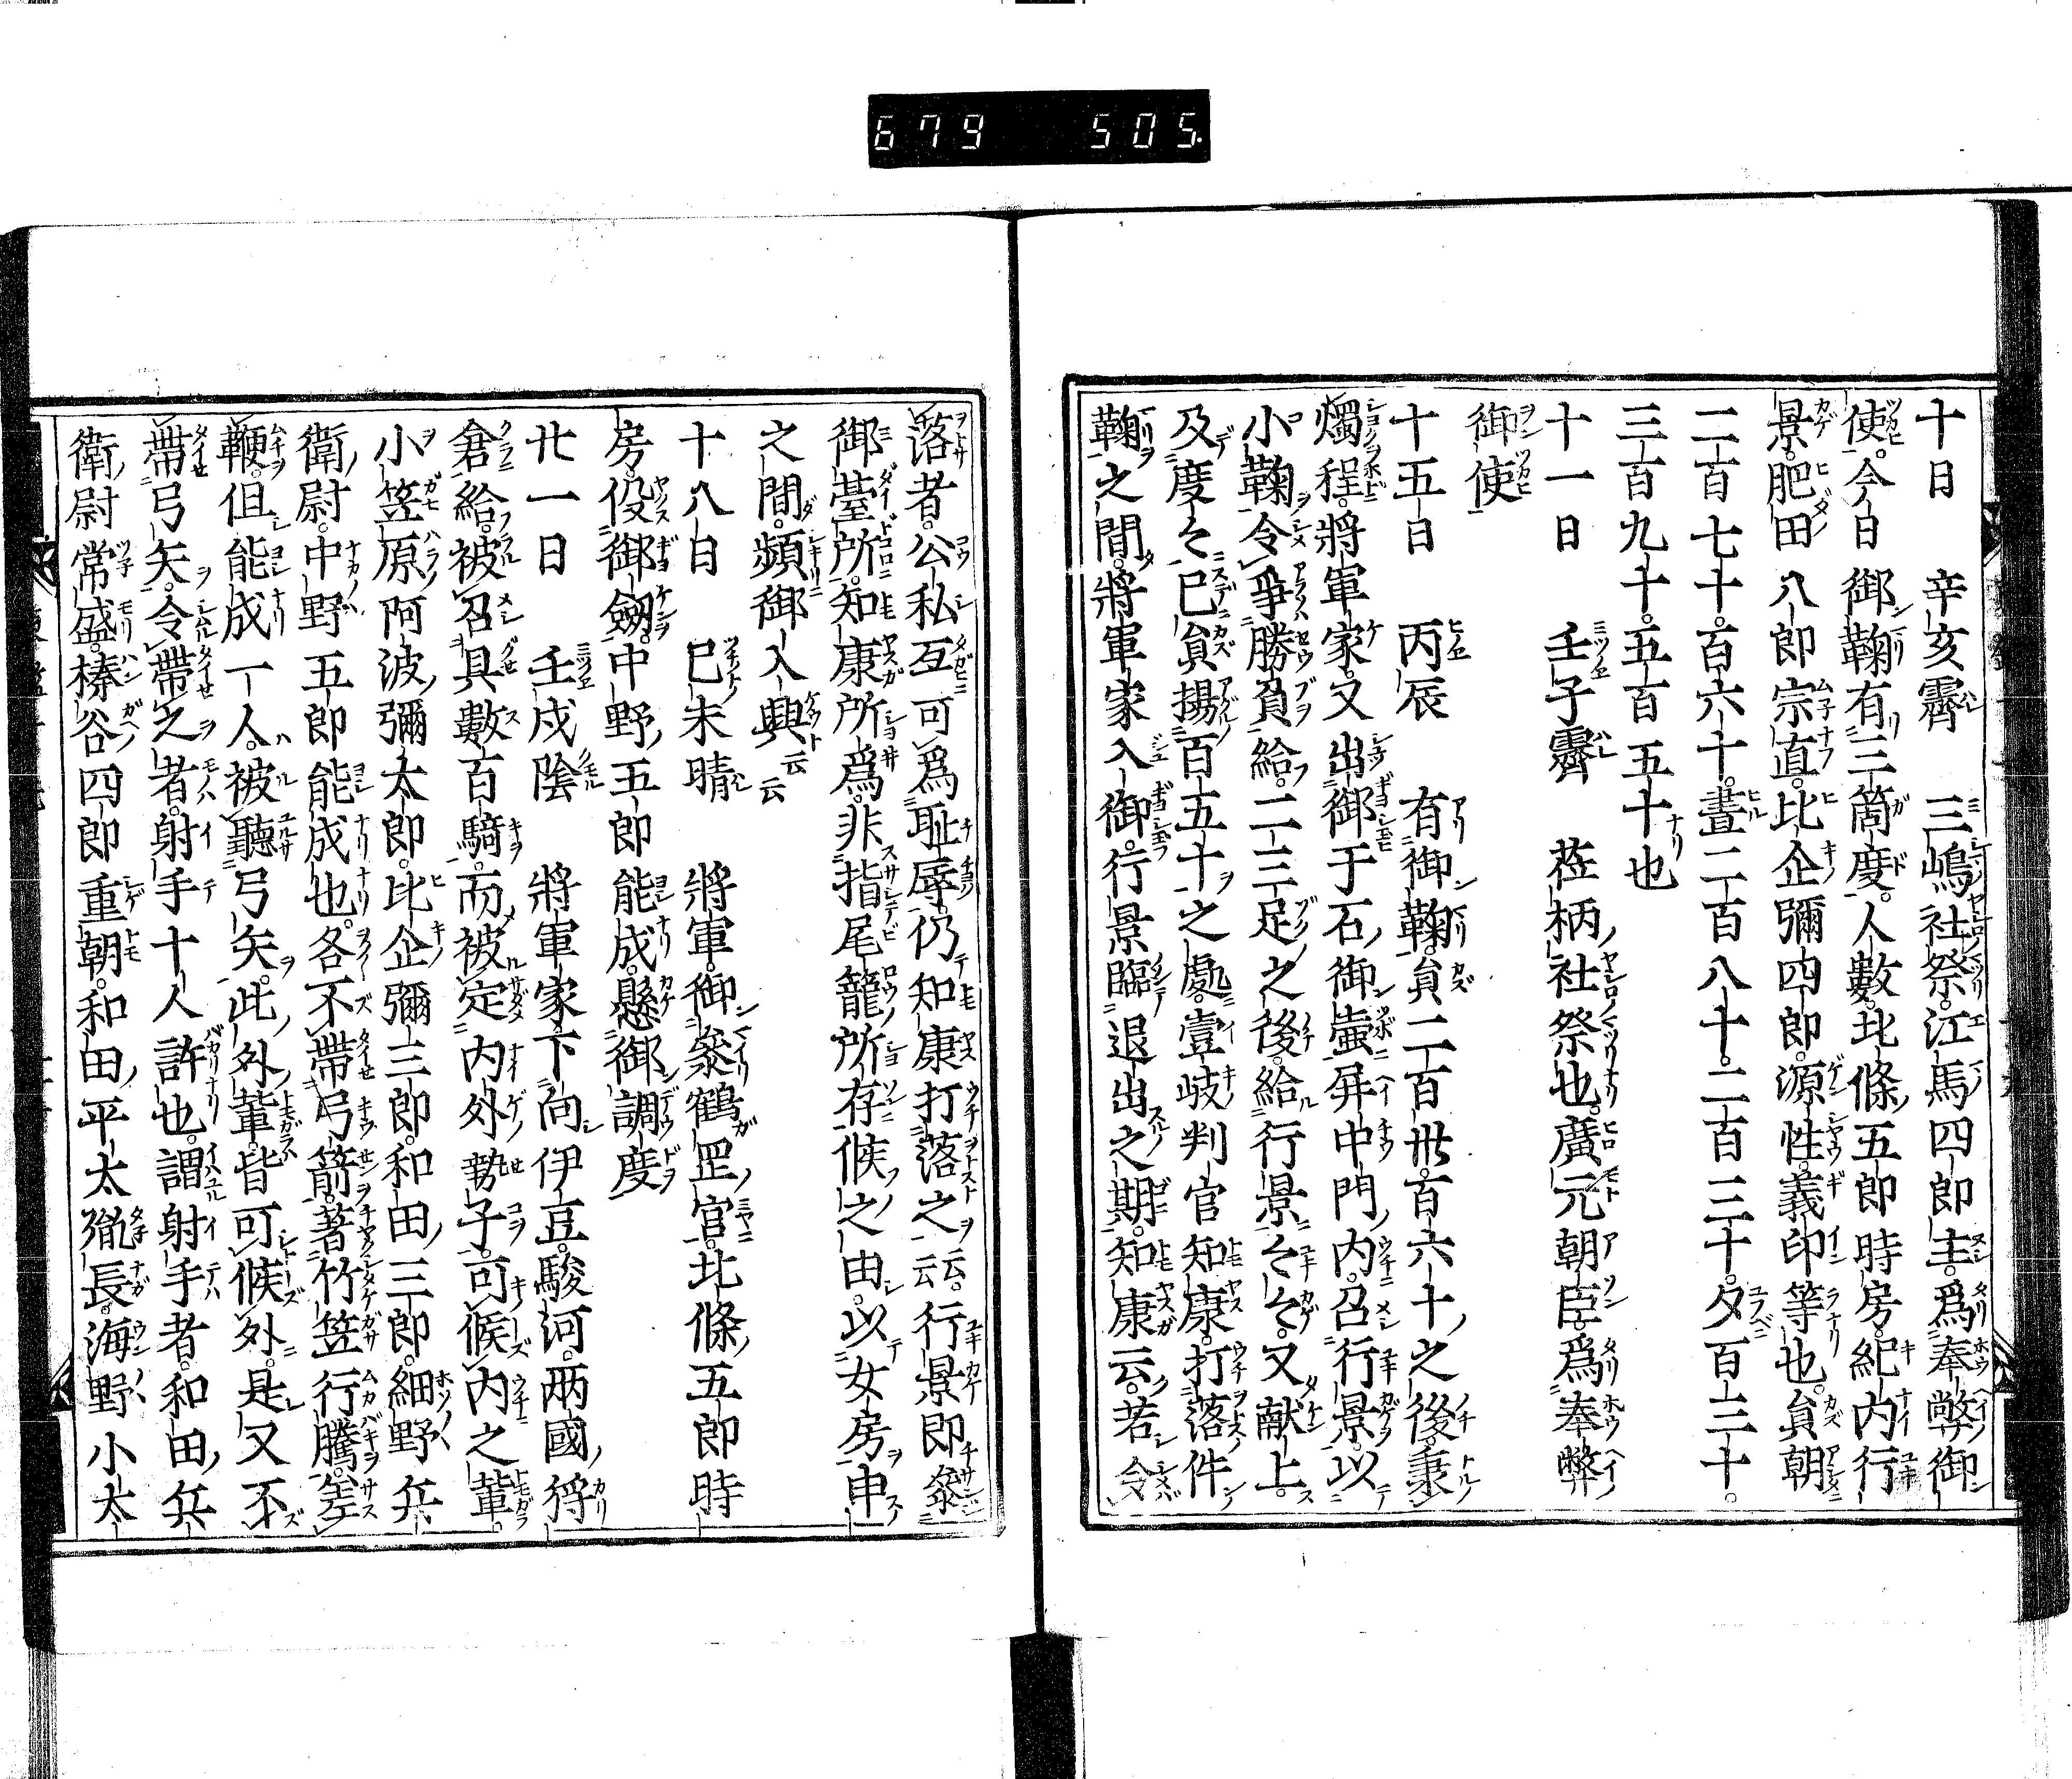 679 505
十日 辛亥霽 三嶋社祭。江馬四郎主。爲奉幣御
使。今日御鞠有三箇度。人數。北條五郎時房。紀内行
景。肥田八郎宗直。比企彌四郎。源性。義印等也。員朝
二百七十。百六十。晝二百八十。二百三十。夕百三十。
三百九十。五百五十也
十一日 壬子霽 荏柄社祭也。廣元朝臣。爲奉幣
御使
十五日 丙辰 有御鞠。員二百卅。百六十之後。秉
燭程。將軍家。又出御于石御壷。屏中門内。召行景。以
小鞠。令爭勝負給。二三足之後。給行景。々々。又献上。
及度々。已員揚百五十之處。壹岐判官知康。打落件
鞠之間。將軍家入御。行景臨退出之期。知康云。若令
落者。公私互可爲耻辱。仍知康打落之云云。行景即參
御臺所。知康所爲。非指尾籠所存候之由。以女房申
之間。頻御入興云云
十八日 己未晴 將軍。御參鶴罡宮。北條五郎時
房。役御劔。中野五郎能成。懸御調度
廿一日 壬戌陰 將軍家。下向伊豆。駿河。兩國狩
倉給。被召具數百騎。而被定内外勢子。可候内之輩。
小笠原阿波彌太郎。比企彌三郎。和田三郎。細野兵
衛尉。中野五郎能成也。各不帶弓箭。著竹笠行騰。差
鞭。但能成一人。被聽弓矢。此外輩。皆可候外。是又不
帶弓矢。令帶之者。射手十人許也。謂射手者。和田兵
衛尉常盛。榛谷四郎重朝。和田平太胤長。海野小太